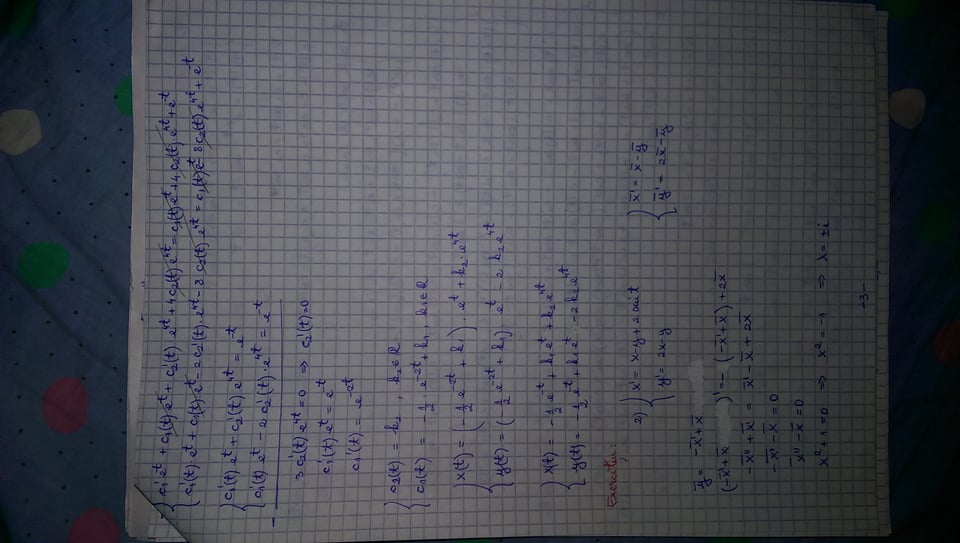 c₁' eᵗ + c₁(t) eᵗ + c₂'(t) e⁴ᵗ + 4c₂(t) e⁴ᵗ = c₁(t) eᵗ + 4 c₂(t) e⁴ᵗ + e⁻ᵗ
c₁'(t) · eᵗ + c₁(t) eᵗ - 2c₂'(t) · e⁴ᵗ - 8 c₂(t) e⁴ᵗ = c₁(t) eᵗ - 8c₂(t) e⁴ᵗ + e⁻ᵗ
c₁'(t) eᵗ + c₂'(t) e⁴ᵗ = e⁻ᵗ
- c₁'(t) eᵗ - 2 c₂'(t) · e⁴ᵗ = e⁻ᵗ
3 c₂'(t) e⁴ᵗ = 0 ⇒ c₂'(t) = 0
c₁'(t) eᵗ = e⁻ᵗ
c₁'(t) = e⁻²ᵗ
c₂(t) = k₂ , k₂ ∈ R
c₁(t) = -1/2 · e⁻²ᵗ + k₁ , k₁ ∈ R
x(t) = (-1/2 e⁻²ᵗ + k₁) · eᵗ + k₂ · e⁴ᵗ
y(t) = (-1/2 e⁻²ᵗ + k₁) · eᵗ - 2 k₂ e⁴ᵗ
x(t) = -1/2 e⁻ᵗ + k₁ eᵗ + k₂ e⁴ᵗ
y(t) = -1/2 e⁻ᵗ + k₁ eᵗ - 2 k₂ e⁴ᵗ
2) x' = x - y + 2 sin t x̄' = x̄ - ȳ
y' = 2x - y ȳ' = 2x̄ - ȳ
ȳ = -x̄' + x̄
(-x̄' + x̄ )' = - (-x̄' + x̄) + 2x̄
-x̄'' + x̄' = x̄' - x̄ + 2x̄
-x̄' - x̄ = 0
x̄'' - x̄ = 0
x² + 1 = 0 ⇒ x² = -1 ⇒ λ = ±i
-3-